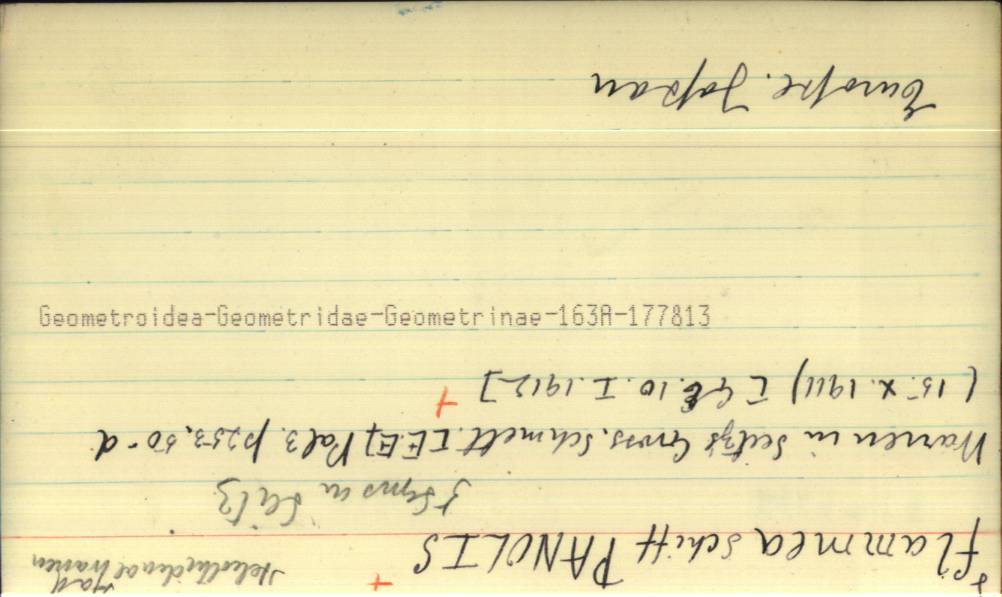 Had
flammea schiff PANOLIS
3 syns in Seitz
Warren in Seitz's Gross. Schmett. [E.E] Pal 3. p 253, 50-d
(15. X. 1911) [G E. 10. I. 1912]
Geometroidea-Geometridae-Geometrinae-163A-177813
Europe. Japan